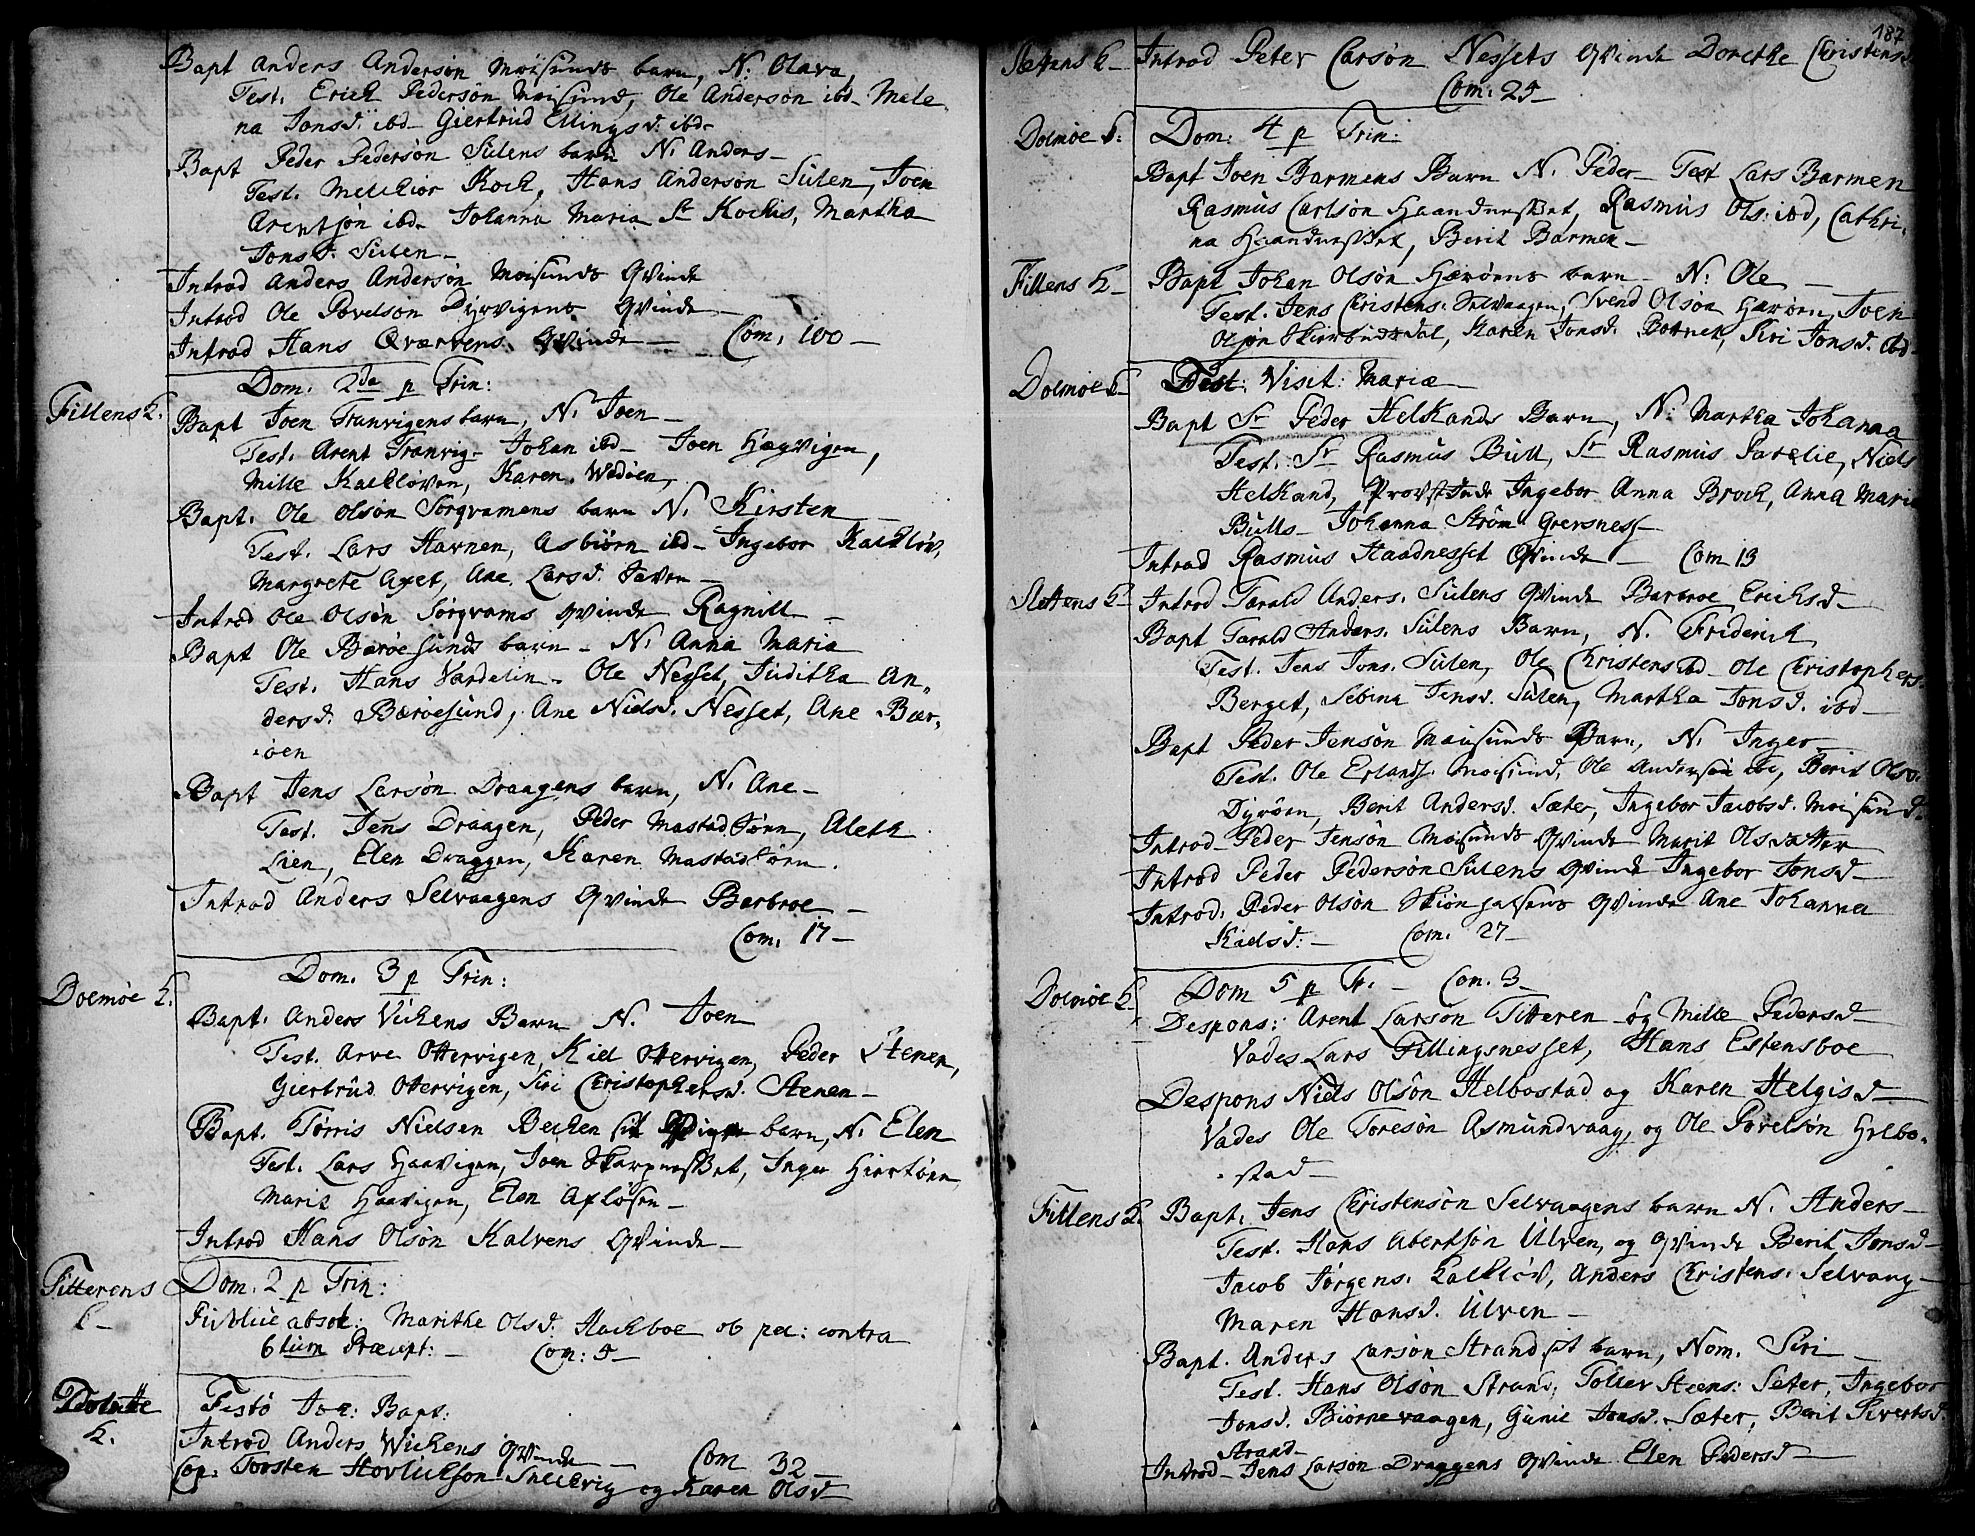 Bapt Anders Andersøn Moisunds barn, N: Olava,
Test. Erich Pedersøn Moisund, Ole Andersøn ibd- Male
na Jonsd. ibd- Giertrud Ellingsd. ibd-
Bapt Peder Pedersøn Sulens barn N. Anders-
Test. Melchior Koch, Hans Andersøn Sulen, Joen
Arentsøn ibd- Johanna Maria Sr Kochs, Martha
Jonsd. Sulen-
Introd Anders Andersøn Moisunds Qvinde
Introd Ole Povelsøn Dyrvigens Qvinde-
Introd Hans Qværvens Qvinde- Com. 100-
Fillens K.
Dom. 2da p Trin:
Bapt Joen Tranvigens barn, N. Joen-
Test. Arent Tranvig- Johan ibd- Joen Hægvigen,
Mille Kalkløven, Karen Wedøen,
Bapt. Ole Olsøn Sørqvamens barn N. Kirsten-
Test. Lars Havnen, Asbiørn ibd- Ingebor Kalkløv,
Margrete Axet, Ane Larsd. Havn-
Introd Ole Olsøn Sørqvams Qvinde Ragnill-
Bapt Ole Bæröesunds barn- N. Anna Maria
Test. Hans Vardelin- Ole Nesset, Juditha An,,
dersd. Bæröesund, Ane Nielsd. Nesset, Ane Bær,
øen
Bapt Jens Larsøn Draagens barn, N. Ane-
Test. Jens Draagen, Peder Mastadtørn, Aleth
Lien, Elen Draggen, Karen Mastadtørn.
Introd Anders Selvaagens Qvinde Barbroe-
Com. 17-
Dolmøe K.
Dom. 3 p Trin:
Bapt. Anders Vichens Barn N. Joen
Test. Arve Ottervigen, Kiel Ottervigen, Peder Stenen,
Giertrud Ottervigen, Siri Christophersd. Stenen-
Bapt. Tørris Nielsen Bechen sit barn, N. Elen
Test. Lars Haavigen, Joen Skarpnesset, Inger Hiertøen
Marit Haavigen, Elen Afløsen-
Introd Hans Olsøn Kalvens Qvinde-
Titterens
K-
Dom. 2 p Trin:
Publice absol: Marithe Olsd. Hachboe ob pec: contra
6tum Præcept:- Com: 5-
K.
Festo Joh: Bapt:
Introd Anders Wichens Qvinde- Com 32-
Cop: Torsten Hovluchson Snillvig og Karen Olsd-
187
Slettens K-
Introd Peter Carsøn Nessets Qvinde Dorethe Christensd.
Com: 25-
Dolmøe K:
Dom: 4 p Trin:
Bapt Joen Barmens Barn N. Peder- Test Lars Barmen
Rasmus Carlsøn Haandnesset, Rasmus Ols: ibd, Cathri,
na Haandnesset, Berit Barmen-
Fillens K-
Bapt Johan Olsøn Hærøens barn- N: Ole-
Test. Jens Christens. Selvaagen, Svend Olsøn Hærøen, Joen
Olsøn Skierbusdal, Karen Jonsd. Botnen, Siri Jonsd. ibd-
Dolmøe K-
Fest: Visit: Mariæ-
Bapt Sr Peder Helkands Barn, N: Martha Johanna
Test. Sr Rasmus Bull, Sr Rasmus Parelie, Niels
Helkand, Provstinde Ingebor Anna Broch, Anna Maria
Bulls- Johanna Strøm Grersness-
Introd Rasmus Haadnesset Qvinde- Com 13
Slettens K-
Introd Tarald Anders. Sulens Qvinde Barbroe Erichsd-
Bapt Tarald Anders. Sulens Barn, N. Friderich
Test. Jens Jons. Sulen, Ole Christens ibd- Ole Christophers.
Berget, Sebina Jensd. Sulen, Martha Jonsd. ibd-
Bapt Peder Jensøn Moisunds Barn, N. Inger-
Test. Ole Erlands. Moisund, Ole Andersøn ibd, Berit Olsd.
Dyrøen, Berit Andersd. Sæter, Ingebor Jacobsd. Moisund-
Introd- Peder Jensøn Moisunds Qvinde Marit Olsdatter
Introd Peder Pedersøn Sulens Qvinde Ingebor Jonsd-
Introd. Peder Olsøn Skiønhalsens Qvinde Ane Johanna
Kielsd:- Com. 27-
Dolmøe K-
Dom 5 p Tr.- Com. 3-
Despons: Arent Larsøn Titteren og Mille Pedersd-
Vades Lars Fillingsnesset, Hans Estensboe
Despons Niels Olsøn Helbostad og Karen Helgisd-
Vades Ole Toresøn Asmundvaag, og Ole Povelsøn Helbo,
stad-
Fillens K.
Bapt. Jens Christensøn Selvaagens barn N. Anders-
Test. Hans Abertsøn Ulven, og Qvinde Berit Jonsd-
Jacob Jørgens. Kalkløv, Anders Christens. Selvaag-
Maren Hansd. Ulven-
Bapt. Anders Larsøn Strand sit barn, Nom. Siri-
Test. Hans Olsøn Strand, Toller Steens: Seter, Ingebor
Jonsd. Biørnevaagen, Gunil Jonsd. Sæter, Berit Sivertsd.
Strand-
Introd- Jens Larsøn Draggens Qvinde Elen Pedersd-